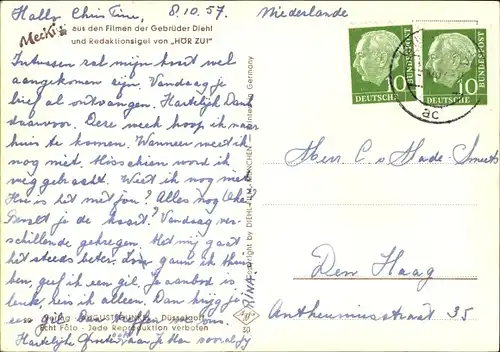 Hallo Christine, 8.10.57.
Niederlande
Mecki
aus den Filmen der Gebrüder Diehl
und Redaktionsigel von „HÖR ZU!"
Intussen zal mijn kaart wel
aangekomen zijn. Vandaag je
brief al ontvangen. Hartelijk Dank
daarvoor. Deze week hoop ik naar
huis te komen. Wanneer weet ik
nog niet. Misschien word ik
weg gebracht. Weet ik nog niet
Hoe is het met jou? Alles nog Oké?
je de kaart? Vandaag ver-
schillende gekregen. Met mij gaat
het steeds beter. gauw ik thuis
ben, geef ik een gil. Je aanbod is
leuk, kom ik alleen. Dan krijg je
een gil. van ons.
Hartelijke Groeten van Ja
RINA.
10
DEUTSCHE
BUNDESPOST
10
DEUTSCHE
BUNDESPOST
ac
Copyright by DIEHL-FILM, MÜNCHEN
Printed in Germany
Herrn C. v Made-Smeets
Den Haag
Antheunisstraat 35
AUGUST GUNKEL · Düsseldorf
Echt Foto - Jede Reproduktion verboten
30